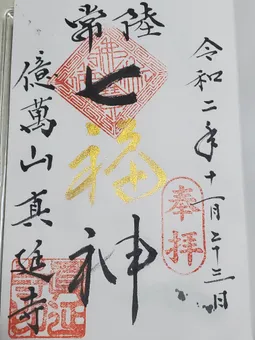 奉拝
令和二年十一月二十三日
常陸
七福神
億萬山真延寺